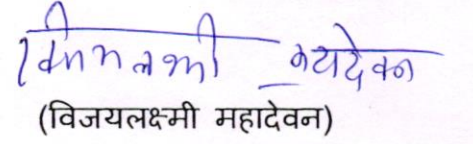 विजयलक्ष्मी महादेवन
(विजयलक्ष्मी महादेवन)